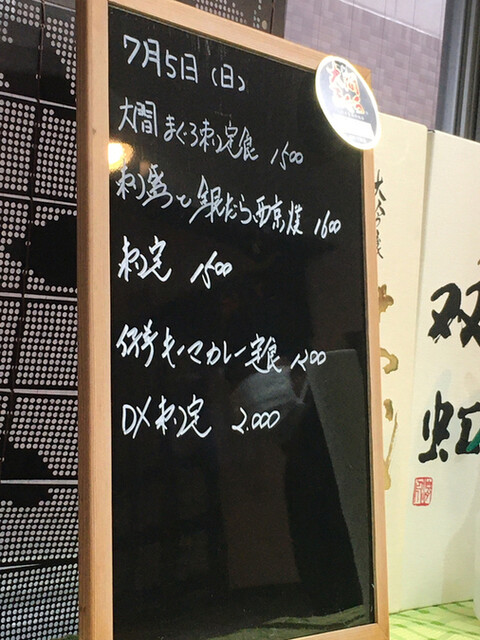 7月5日(日)
大間まぐろ刺定食 1500
刺盛と銀だら西京焼 1600
刺定 1500
キーマカレー定食 1200
DX刺定 2.000
大間
双虹